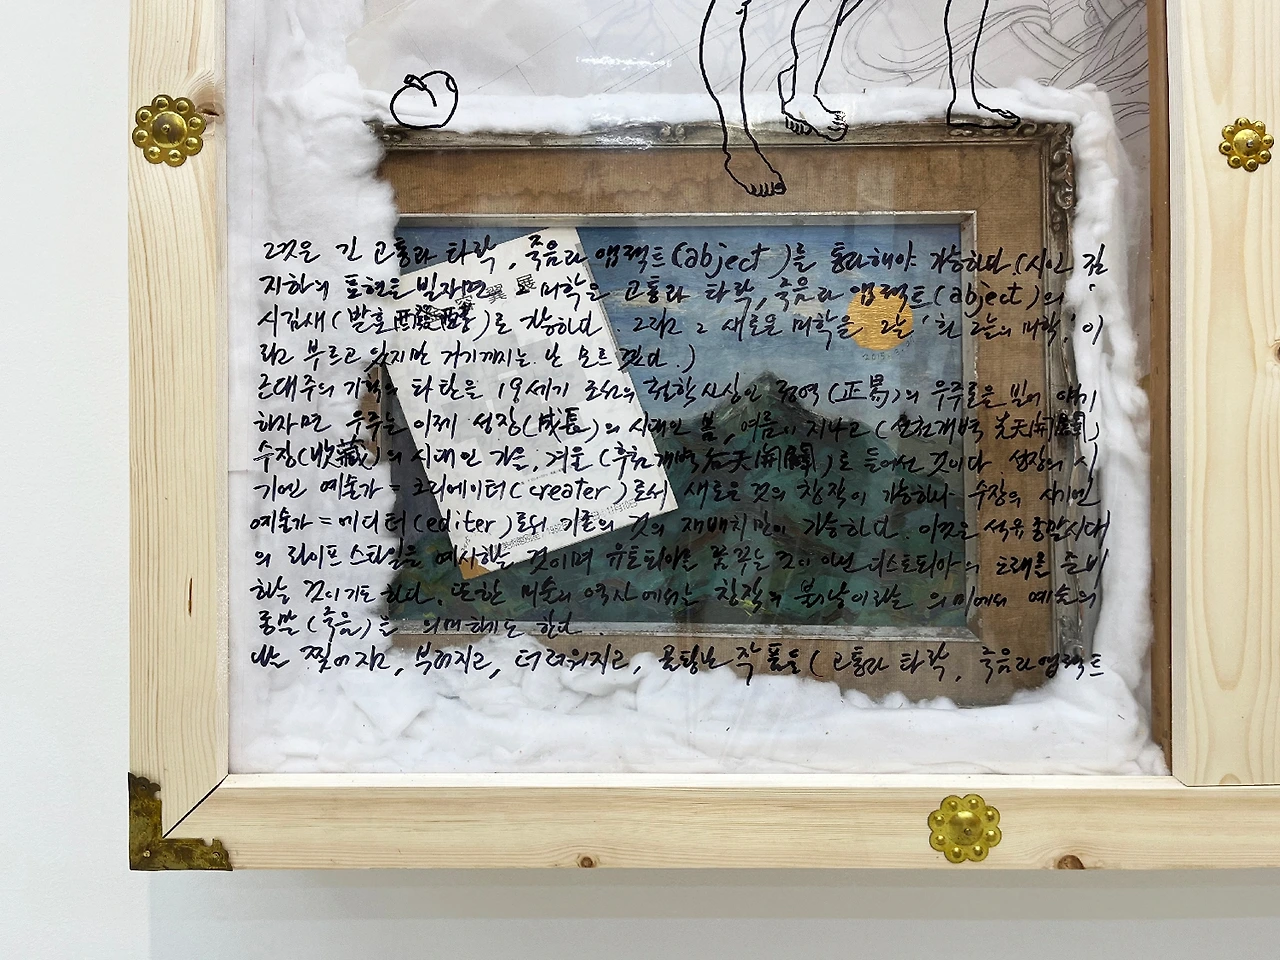 그것은 긴 고통과 타락, 죽음과 앱젝트(abject)를 통과해야 가능하다 (시인 김
지하의 표현을 빌자면 미학은 고통과 타락, 죽음과 앱젝트(abject)의
시김새(발효 醱酵)로 가능하다. 그리고 그 새로운 미학을 그는 '흰 그늘의 미학,' 이
라고 부르고 있지만 거기까지는 난 모르겠다.)
근대주의 기획의 타탄을 19세기 조선의 철학사상인 정역(正易)의 우주론을 빌어 얘기
하자면 우주는 이제 성장(成長)의 시대인 봄, 여름이 지나고 (선천개벽 先天開闢)
수장(收藏)의 시대인 가을, 겨울 (후천개벽 后天開闢)로 들어선 것이다. 성장의 시
기엔 예술가 = 크리에이터(creater)로서 새로운 것의 창작이 가능하나 수장의 시기엔
예술가 = 에디터(editer)로서 기존의 것의 재배치만이 가능하다. 이것은 석유종말시대
의 라이프 스타일을 예시하는 것이며 유토피아를 꿈꾸는 것이 아닌 디스토피아의 도래를 준비
하는 것이기도 하다. 또한 미술의 역사에서는 창작의 불가능이라는 의미에서 예술의
종말(죽음)을 의미하기도 한다.
나는 찢어지고, 부러지고, 더러워지고, 곰팡난 작품들(고통과 타락, 죽음과 앱젝트
2015.